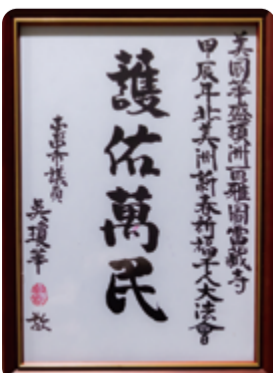 美國華盛頓州西雅圖雷藏寺
甲辰年北美洲新春祈福千人大法會
護佑萬民
市議員
吳瓊華
敬